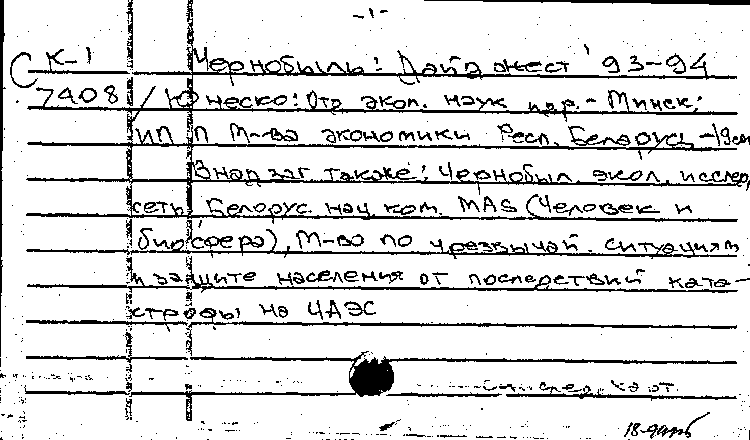 -1-
К-1 Чернобыль: Дайджест '93-94
С 7408 / Юнеско: Отд экол. наук - Минск:
ИПП М-ва экономики Респ. Беларусь, -
В надзаг также: Чернобыл. экол. исслед.
сеть, Белорус. нац ком. MAB (Человек и
биосфера), М-во по чрезвычай. ситуациям
и защите населения от последствий ката-
строфы на ЧАЭС
См. след. к-от.